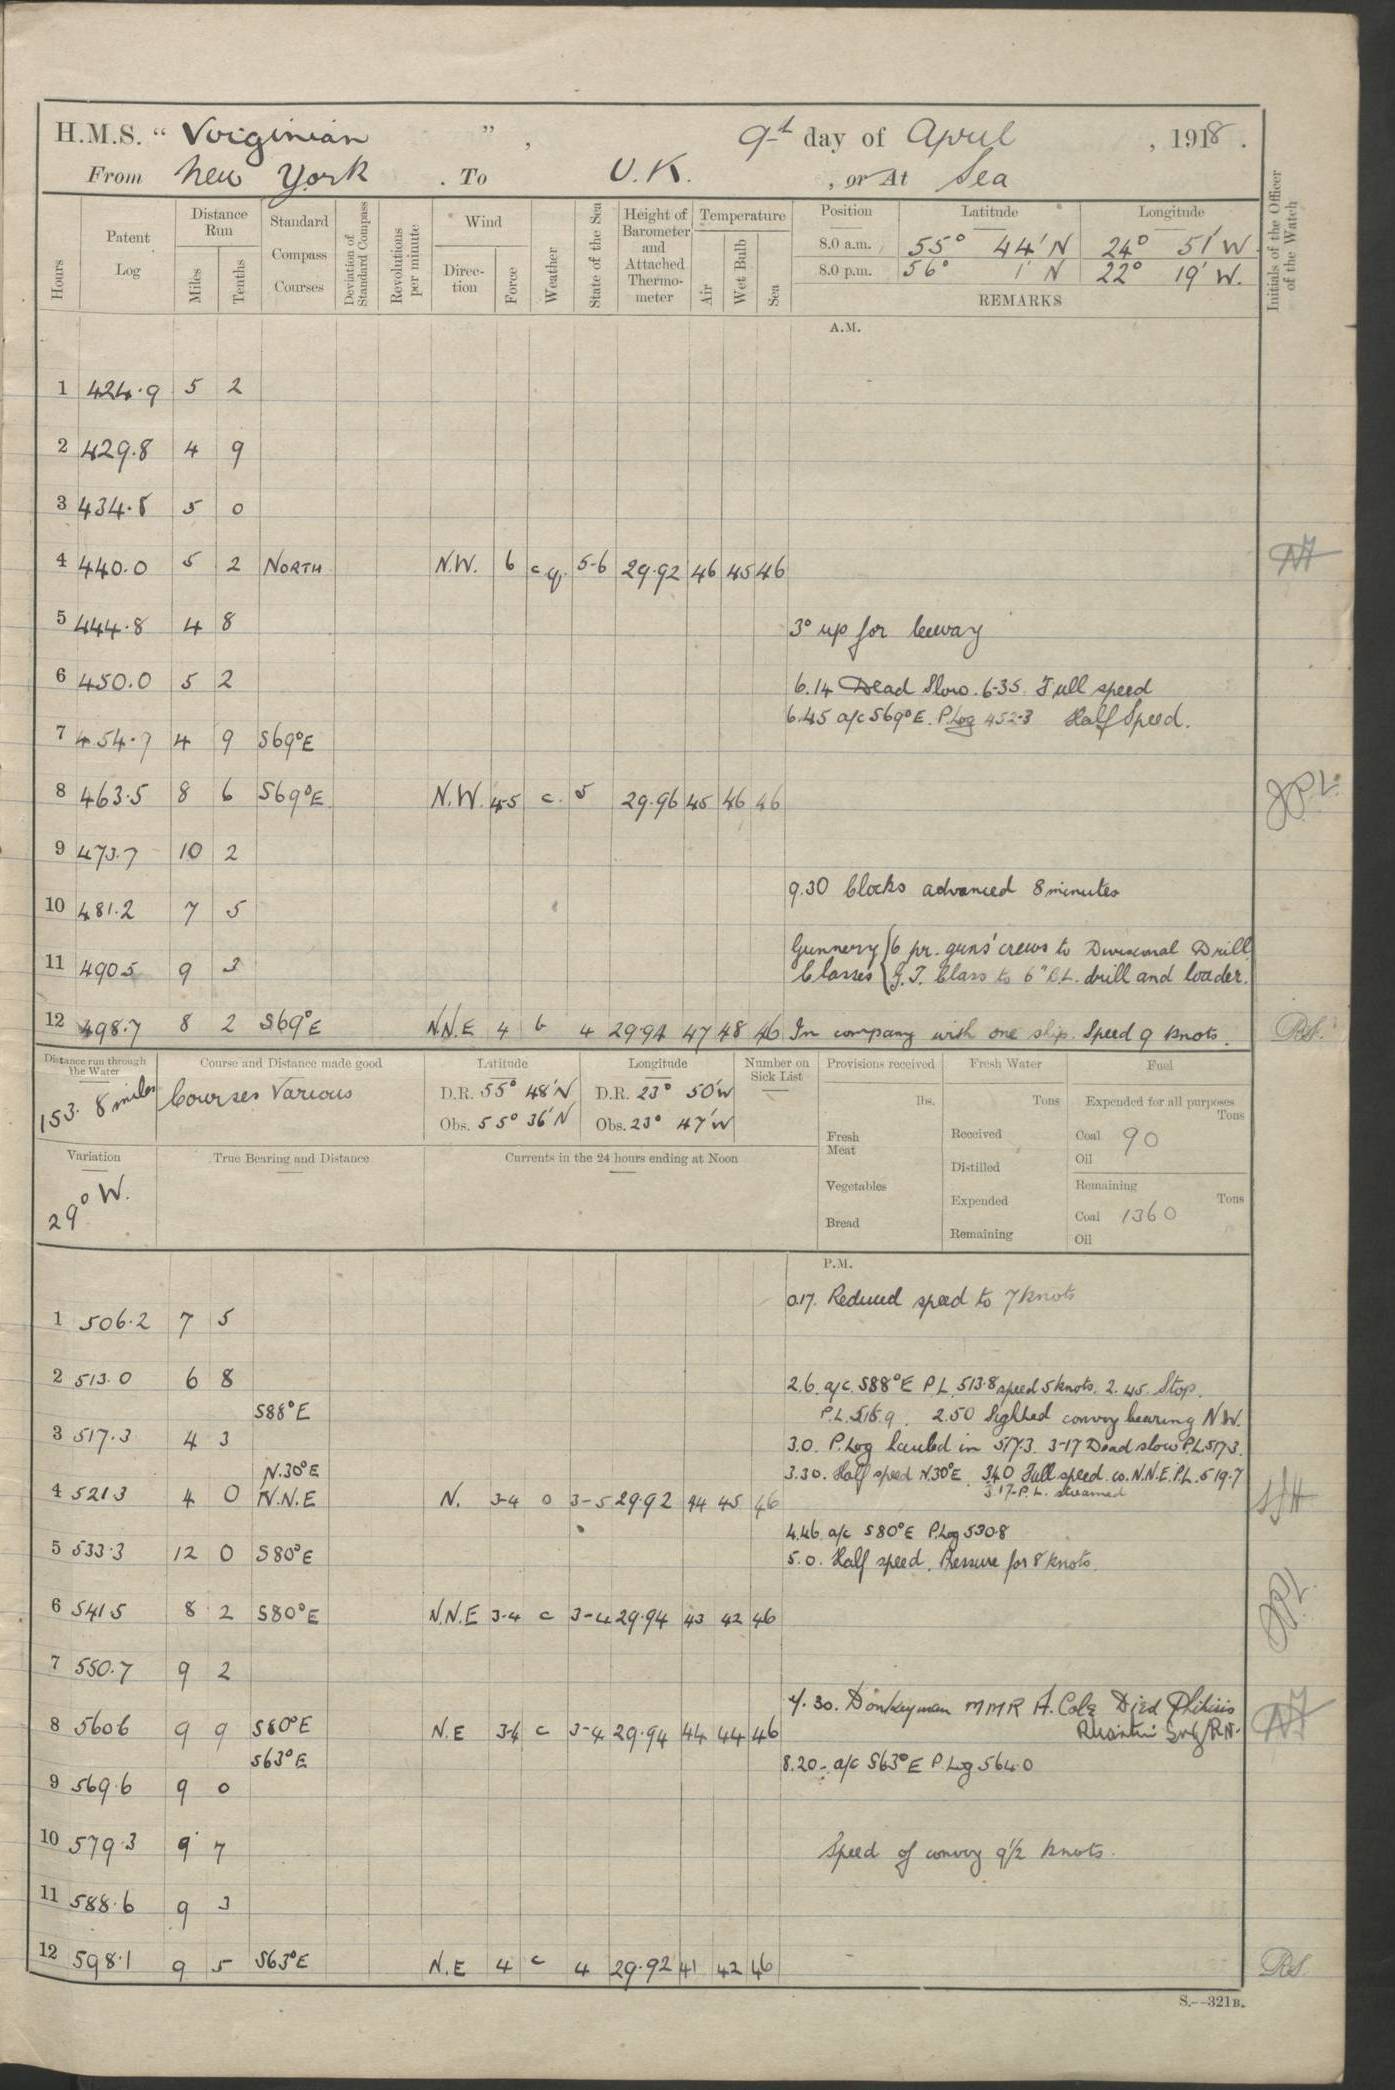 H.M.S. “ Virginian ”, 9th day of April, 1918.
From New York. To U.K., or At Sea
Hours
Patent Log
Distance Run
Miles
Tenths
Standard Compass Courses
Deviation of Standard Compass
Revolutions per minute
Wind
Direction
Force
Weather
State of the Sea
Height of Barometer and Attached Thermometer
Temperature
Air
Wet Bulb
Sea
Position Latitude Longitude
8.0 a.m. 55° 44' N 24° 51' W
8.0 p.m. 56° 1' N 22° 19' W.
REMARKS
Initials of the Officer of the Watch
A.M.
1 424.9 5 2
2 429.8 4 9
3 434.8 5 0
4 440.0 5 2 NORTH N.W. 6 c.q. 5-6 29.92 46 45 46
5 444.8 4 8 3° up for leeway
6 450.0 5 2 6.14 Dead Slow. 6-35. Full speed
6.45 a/c S69°E. P.Log 452.3 Half Speed.
7 454.9 4 9 S69°E
8 463.5 8 6 S69°E N.W. 4-5 c. 5 29.96 45 46 46 J.P.L.
9 473.7 10 2
9.30 Clocks advanced 8 minutes
10 481.2 7 5
Gunnery { 6 pr. guns' crews to Divisional Drill
11 490.5 9 3 Classes { G.T. Class to 6" B.L. drill and loader.
12 498.7 8 2 S69°E N.N.E 4 b 4 29.94 47 48 46 In company with one ship. Speed 9 knots. R.S.
Distance run through the Water
153.8 miles
Course and Distance made good
Courses Various
Latitude
D.R. 55° 48' N
Obs. 55° 36' N
Longitude
D.R. 23° 50' W
Obs. 23° 47' W
Number on Sick List
Provisions received
lbs.
Fresh Meat
Vegetables
Bread
Fresh Water
Tons
Received
Distilled
Expended
Remaining
Fuel
Expended for all purposes
Tons
Coal 90
Oil
Remaining
Tons
Coal 1360
Oil
Variation
29° W.
True Bearing and Distance
Currents in the 24 hours ending at Noon
P.M.
0.17. Reduced speed to 7 knots
1 506.2 7 5
2 513.0 6 8 2.6. a/c. S88°E P.L. 513.8 speed 5 knots. 2.45. Stop.
S88°E P.L. 516.9. 2.50 Sighted convoy bearing NW.
3 517.3 4 3 3.0. P.Log hauled in 517.3. 3-17 Dead slow P.L. 517.3.
N.30°E 3.30. Half speed N.30°E. 3.40 Full speed. co. N.N.E. P.L. 519.7
4 521.3 4 0 N.N.E N. 3-4 o 3-5 29.92 44 45 46 3.17. P.L. streamed
4.46. a/c S80°E P.Log 530.8
5 533.3 12 0 S80°E 5.0. Half speed. Pressure for 8 knots.
6 541.5 8 2 S80°E N.N.E 3-4 c 3-4 29.94 43 42 46 J.P.L.
7 550.7 9 2
7.30. Donkeyman MMR A. Cole Died Phthisis
8 560.6 9 9 S80°E N.E 3-4 c 3-4 29.94 44 44 46
S63°E 8.20. a/c S63°E P.Log 564.0
9 569.6 9 0
10 579.3 9 7 Speed of convoy 9½ knots.
11 588.6 9 3
12 598.1 9 5 S63°E N.E 4 c 4 29.92 41 42 46 R.S.
S.—321B.